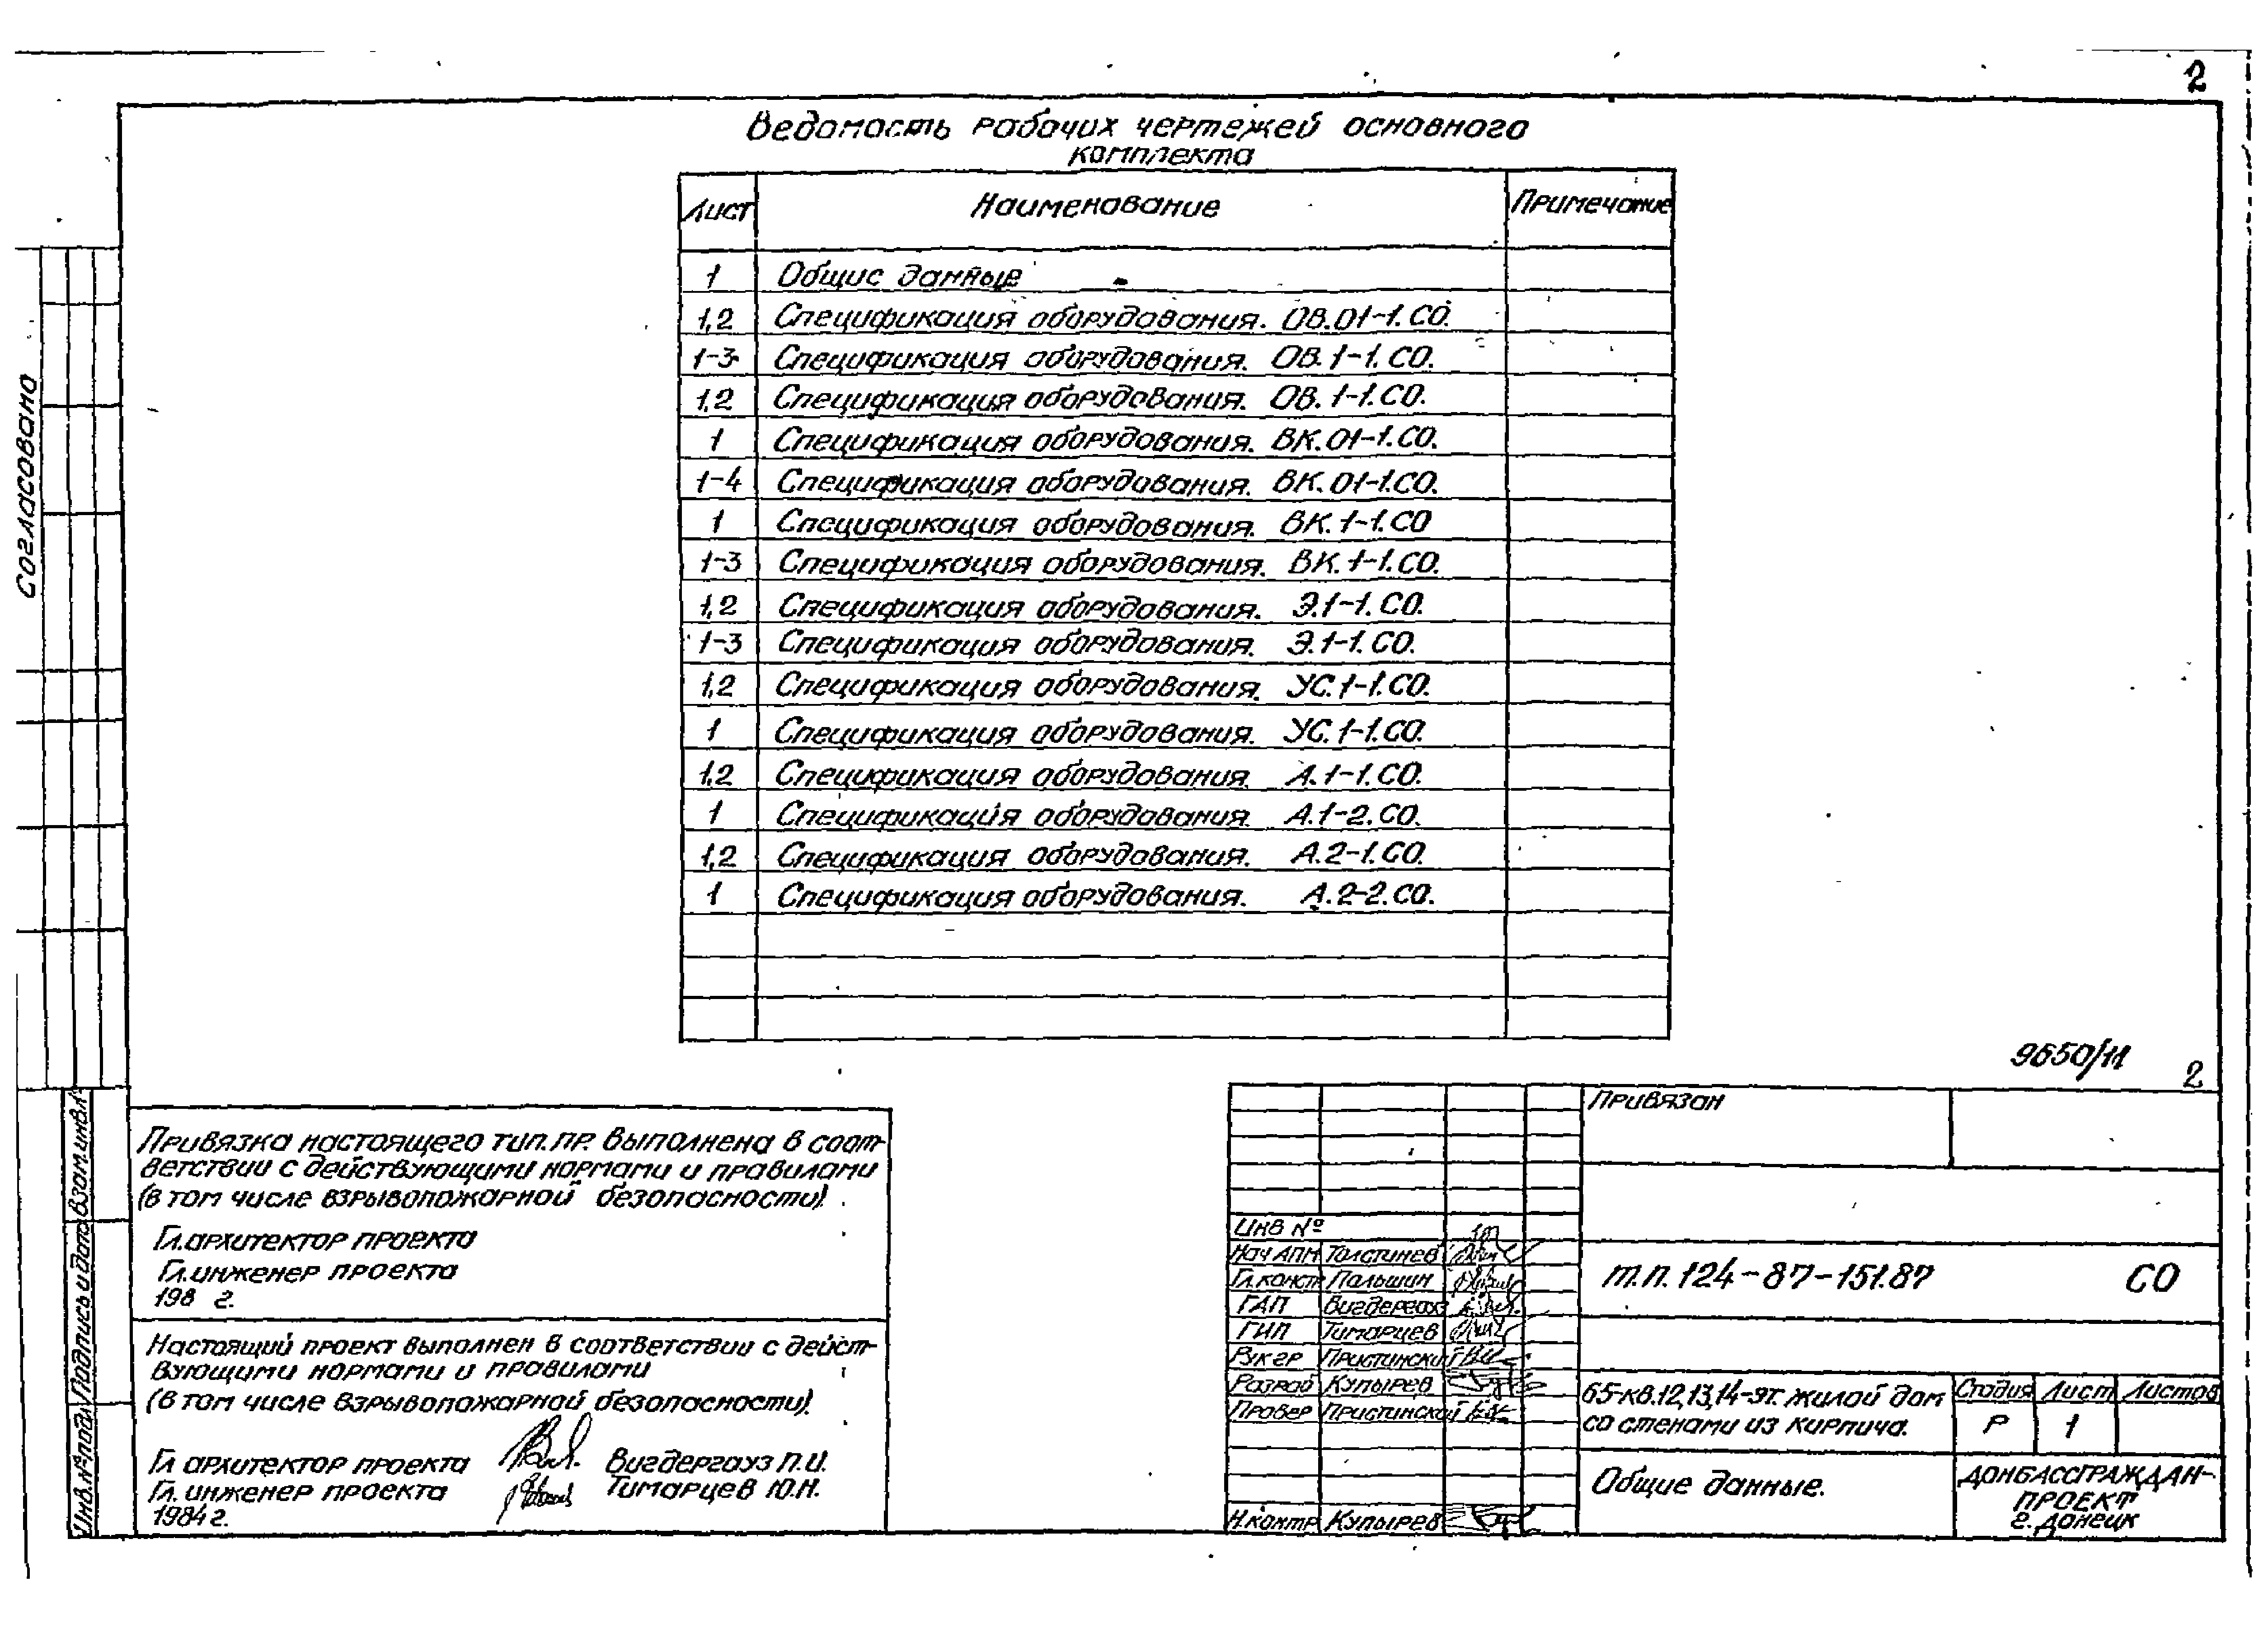 2
Ведомость рабочих чертежей основного
комплекта
Лист Наименование Примечание
1 Общие данные
1,2 Спецификация оборудования. ОВ.01-1.СО.
1-3 Спецификация оборудования. ОВ.1-1.СО.
1,2 Спецификация оборудования. ОВ.1-1.СО.
1 Спецификация оборудования. ВК.01-1.СО.
1-4 Спецификация оборудования. ВК.01-1.СО.
1 Спецификация оборудования. ВК.1-1.СО
1-3 Спецификация оборудования. ВК.1-1.СО.
1,2 Спецификация оборудования. Э.1-1.СО.
1-3 Спецификация оборудования. Э.1-1.СО.
1,2 Спецификация оборудования. УС.1-1.СО.
1 Спецификация оборудования. УС.1-1.СО.
1,2 Спецификация оборудования. А.1-1.СО.
1 Спецификация оборудования. А.1-2.СО.
1,2 Спецификация оборудования. А.2-1.СО.
1 Спецификация оборудования. А.2-2.СО.
Согласовано
Взам.инв.№
Подпись и дата
Инв.№подл
9650/11 2
Привязка настоящего тип.пр. выполнена в соот-
ветствии с действующими нормами и правилами
(в том числе взрывопожарной безопасности)
Гл.архитектор проекта
Гл.инженер проекта
198 г.
Настоящий проект выполнен в соответствии с дейст-
вующими нормами и правилами
(в том числе взрывопожарной безопасности).
Гл архитектор проекта Вигдергауз П.И.
Гл. инженер проекта Тимарцев Ю.Н.
1984г.
Привязан
Инв №
Нач АПМ Толстинев
Гл.конст Пальшин
ГАП Вигдергауз
ГИП Тимарцев
Рук гр Пристински
Разраб Купырев
Провер Пристинский
Н.контр Купырев
т.п. 124-87-151.87 СО
65-кв.12,13,14-эт. жилой дом
со стенами из кирпича.
Стадия Лист Листов
Р 1
Общие данные.
ДОНБАССГРАЖДАН-
ПРОЕКТ
г. Донецк